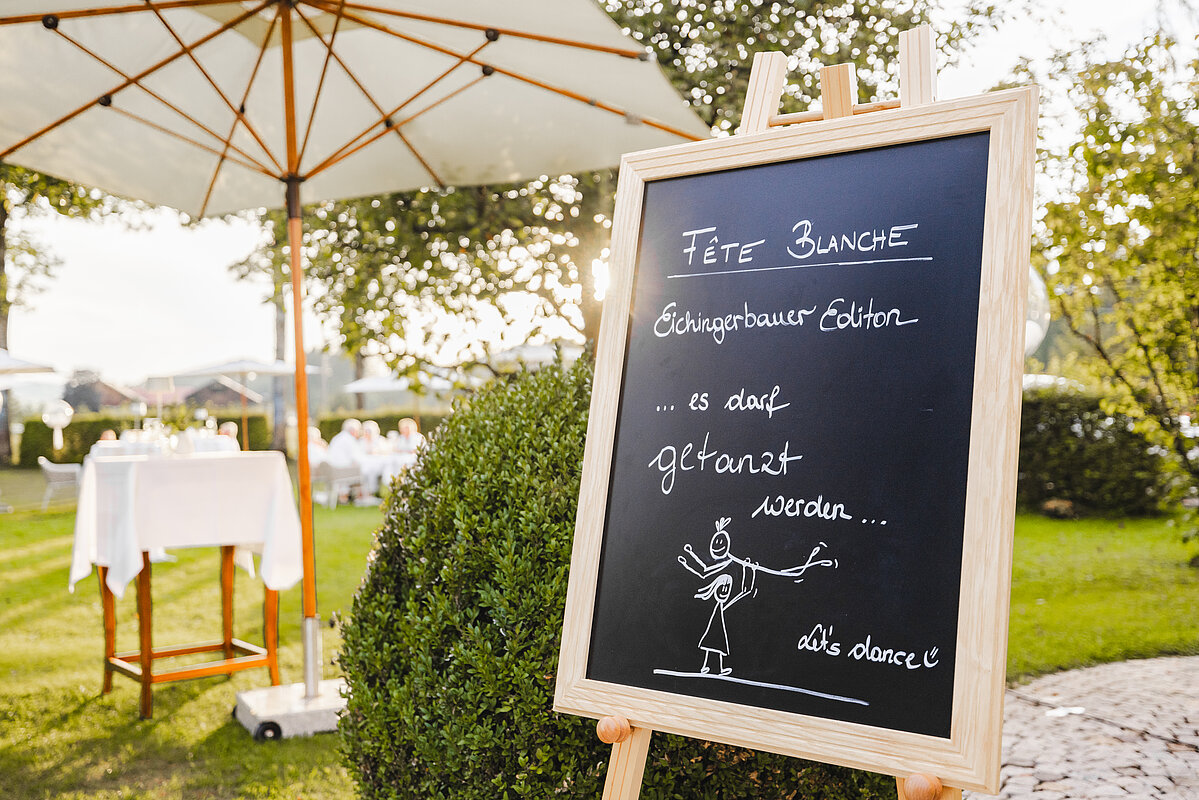 FÊTE BLANCHE
Eichingerbauer Editon
... es darf
getanzt
werden...
Let's dance